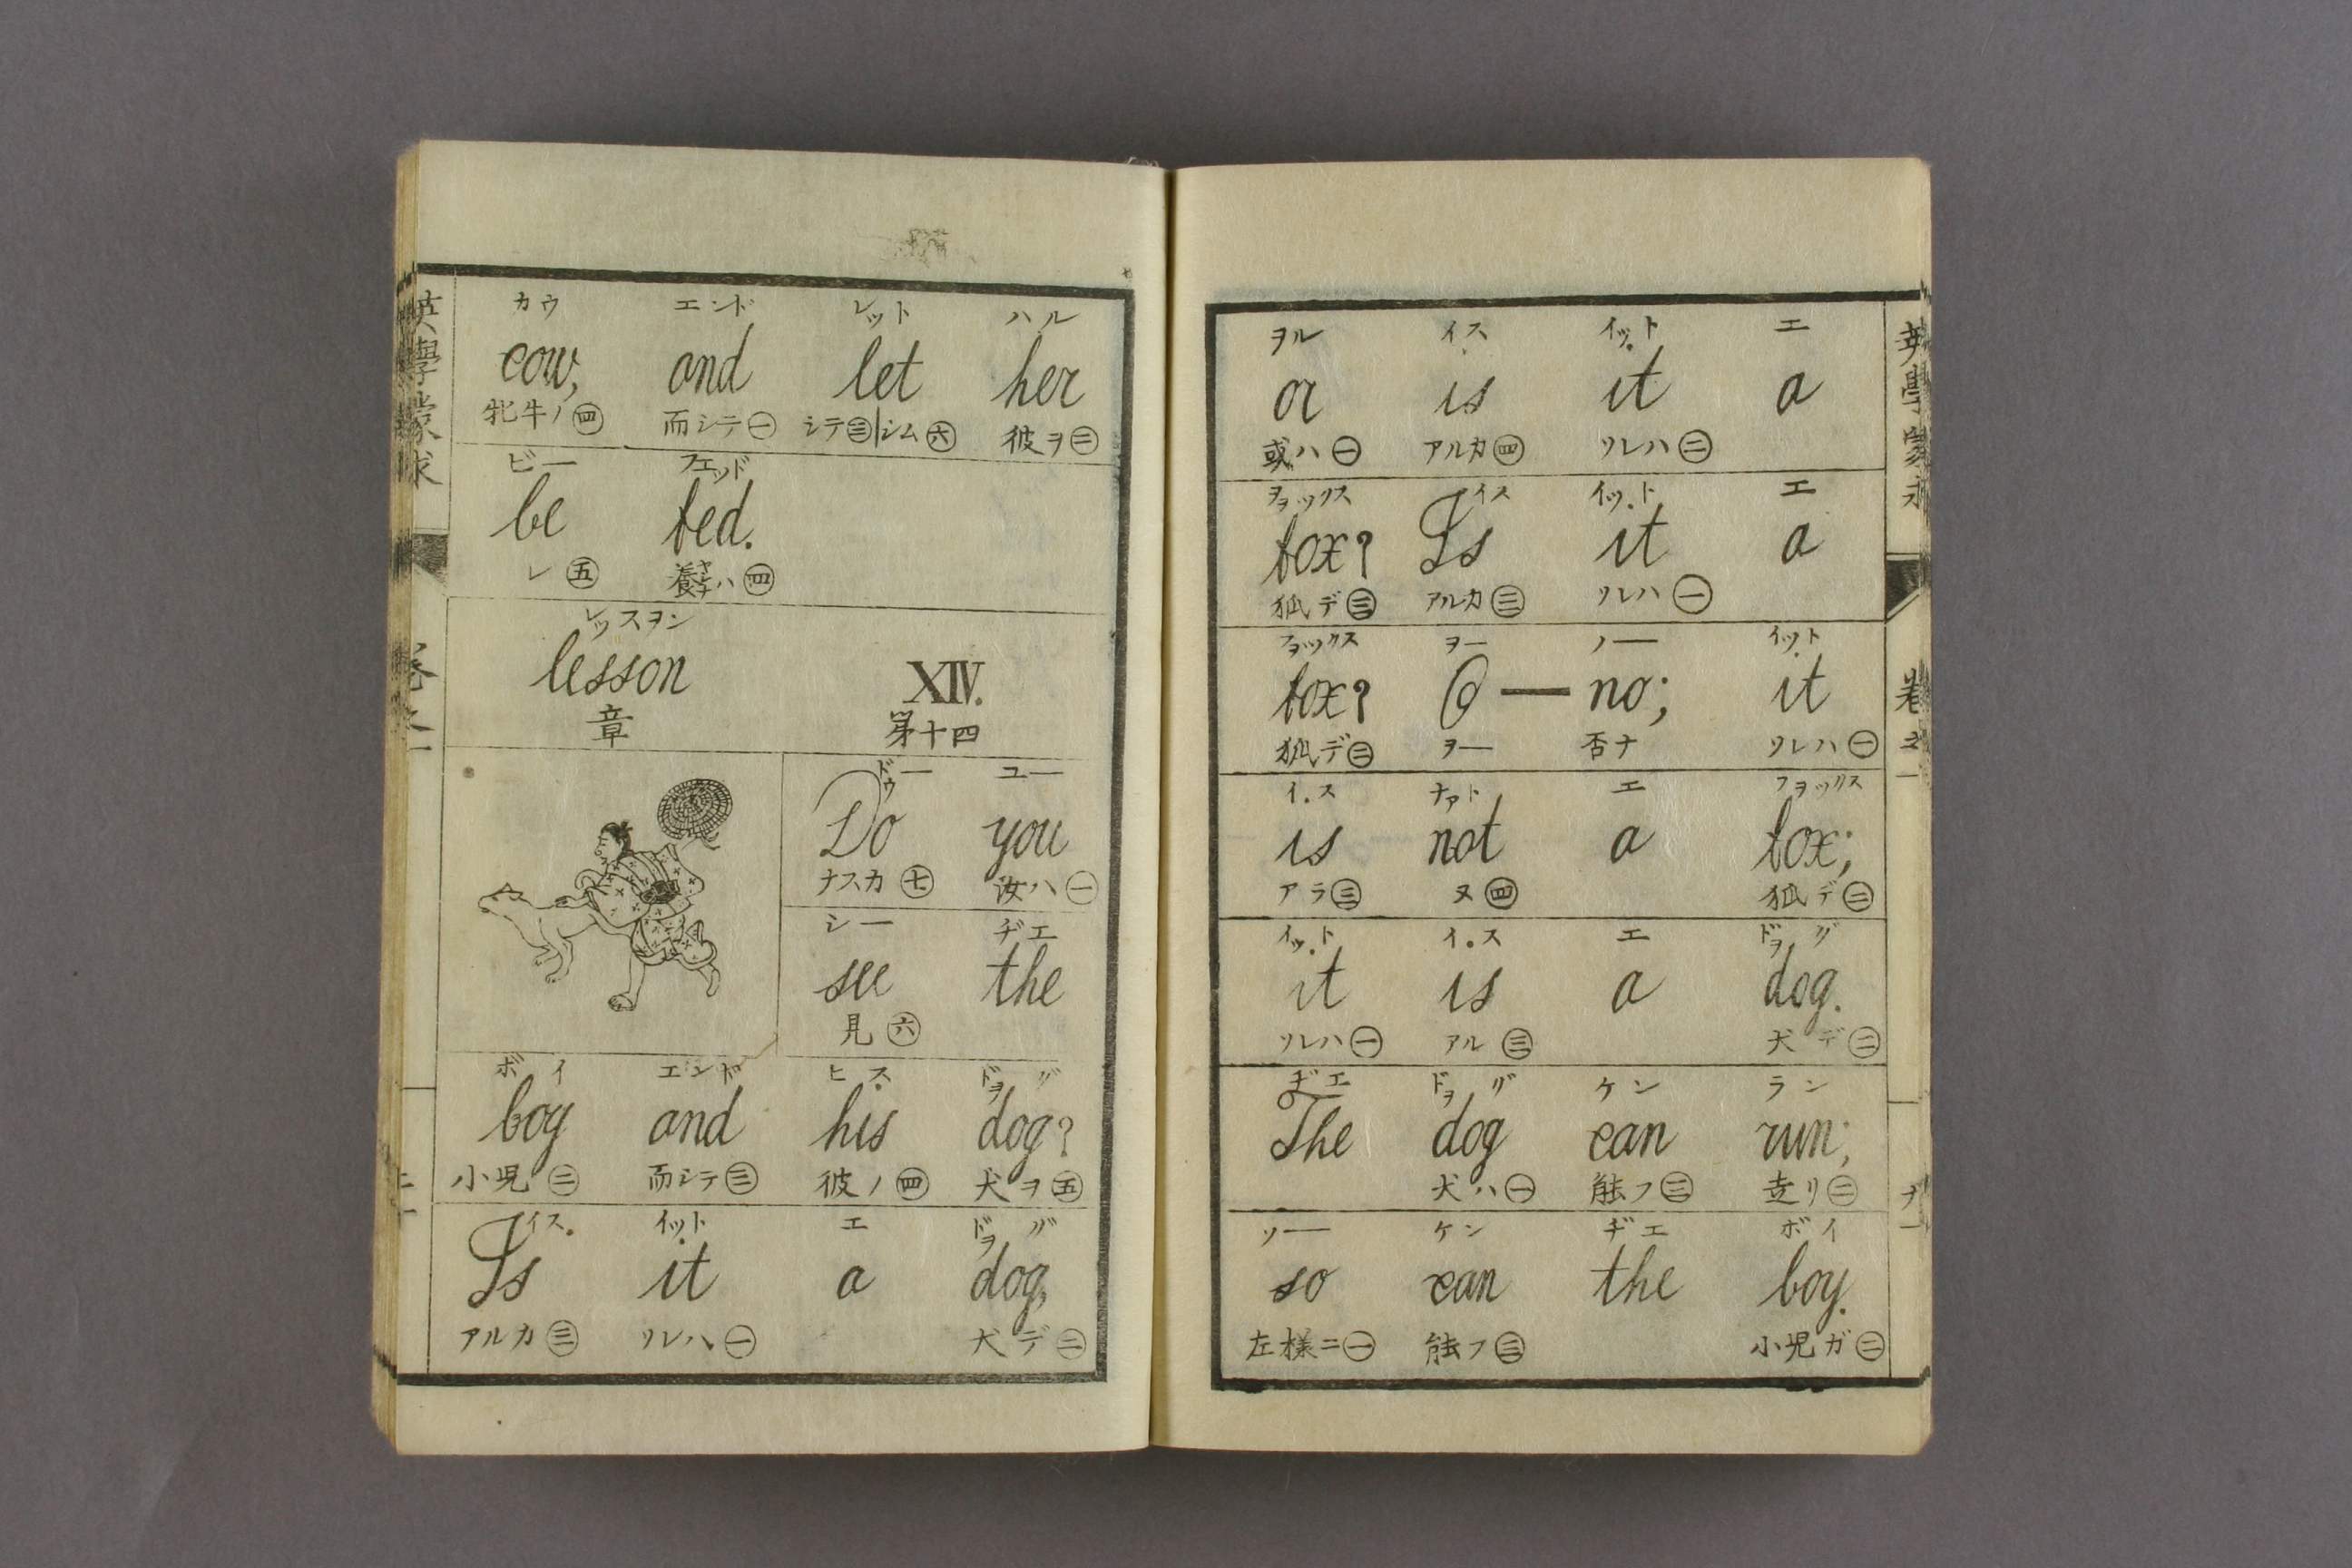 英學蒙求
卷之一
カウ エンド レット ハル
cow, and let her
牝牛ノ㊃ 而シテ㊀ シテ㊂|シム㊅ 彼ヲ㊁
ビー フエッド
be fed.
レ㊄ 養ヤシナハ㊃
レッスヲン
lesson XIV.
章 第十四
ドウー ユー
Do you
ナスカ㊆ 汝ハ㊀
シー ヂエ
see the
見㊅
ボイ エンド ヒス ドヲグ
boy and his dog?
小児㊁ 而シテ㊂ 彼ノ㊃ 犬ヲ㊄
イス イット エ ドヲグ
Is it a dog,
アルカ㊂ ソレハ㊀ 犬デ㊁
ヲル イス イット エ
or is it a
或ハ㊀ アルカ㊃ ソレハ㊁
フヲックス イス イット エ
fox? Is it a
狐デ㊂ アルカ㊂ ソレハ㊀
フヲックス ヲー ノー イット
fox? O — no; it
狐デ㊁ ヲー 否ナ ソレハ㊀
イス ナアト エ フヲックス
is not a fox;
アラ㊂ ヌ㊃ 狐デ㊁
イット イス エ ドヲグ
it is a dog.
ソレハ㊀ アル㊂ 犬デ㊁
ヂエ ドヲグ ケン ラン
The dog can run;
犬ハ㊀ 能フ㊂ 走リ㊁
ソー ケン ヂエ ボイ
so can the boy.
左様ニ㊀ 能フ㊂ 小児ガ㊁